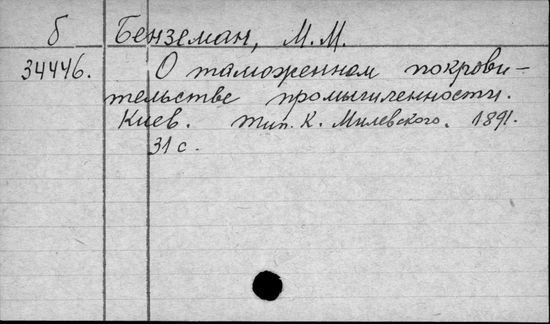 б Бенземан, М.М.
34446. О таможенном покрови-
тельстве промышленности.
Киев. Тип. К. Милевского. 1891.
31 с.